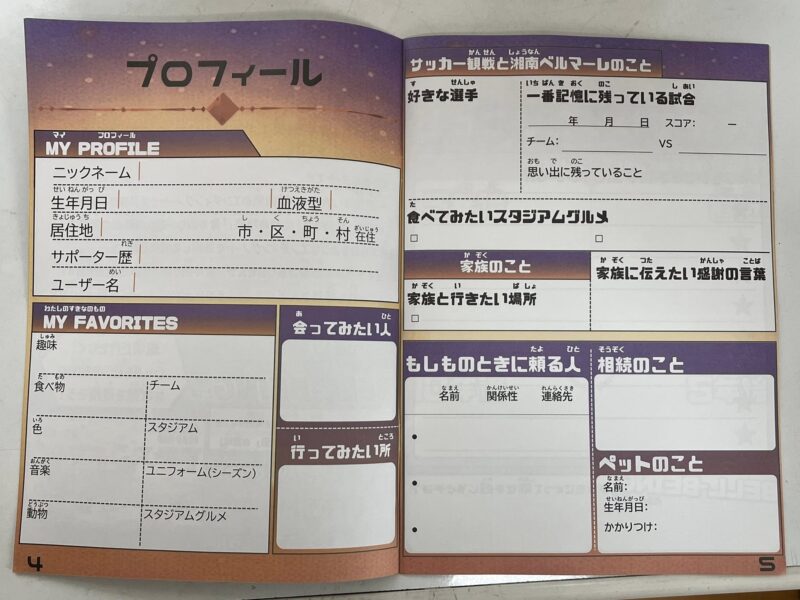 プロフィール
マイ プロフィール
MY PROFILE
ニックネーム
せいねんがっぴ けつえきがた
生年月日 血液型
きょじゅうち し く ちょう そん ざいじゅう
居住地 市・区・町・村 在住
れき
サポーター歴
めい
ユーザー名
わたしのすきなのもの
MY FAVORITES
しゅみ
趣味
た もの
食べ物 チーム
いろ
色 スタジアム
おんがく
音楽 ユニフォーム(シーズン)
どうぶつ
動物 スタジアムグルメ
あ ひと
会ってみたい人
い ところ
行ってみたい所
4
かんせん しょうなん
サッカー観戦と湘南ベルマーレのこと
す せんしゅ
好きな選手
いちばん き おく のこ し あい
一番記憶に残っている試合
年 月 日 スコア: ー
チーム: VS
おも で のこ
思い出に残っていること
た
食べてみたいスタジアムグルメ
□ □
か ぞく
家族のこと
か ぞく い ば しょ
家族と行きたい場所
□
か ぞく つた かんしゃ ことば
家族に伝えたい感謝の言葉
たよ ひと
もしものときに頼る人
なまえ かんけいせい れんらくさき
名前 関係性 連絡先
•
•
•
そうぞく
相続のこと
ペットのこと
なまえ
名前:
せいねんがっぴ
生年月日:
かかりつけ:
5